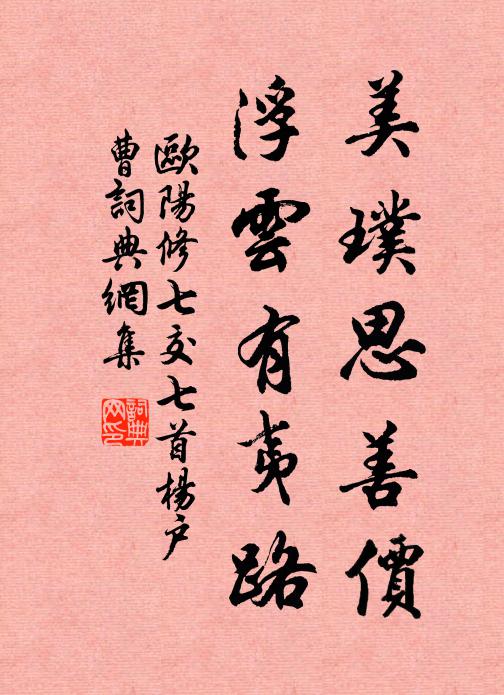 美璞思善價
浮雲有夷路
歐陽修七交七首楊戶
曹詞典網集
詞典
网印